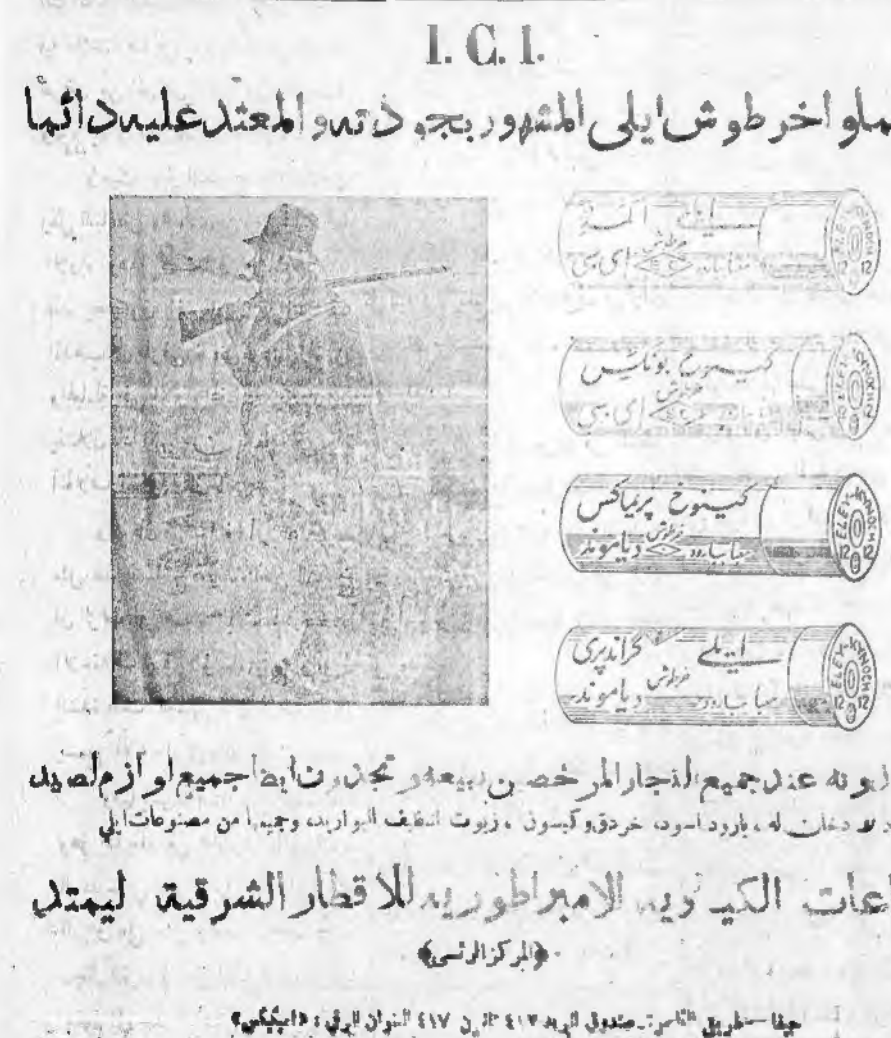 I. C. I.
خرطوش ايلى المشهور بجودته و المعتمد عليه دائمًا
ايلي
معبا ببارود خرطوش اى سى
ELEY-KYNOCH
12 12
كينوخ بوناكس
خرطوش اى سى
ELEY-KYNOCH
12 12
كينوخ پريماكس
معبا ببارود خرطوش دياموند
ELEY-KYNOCH
12 12
ايلي گراندپرى
معبا ببارود خرطوش دياموند
ELEY-KYNOCH
12 12
عند جميع التجار المرخصين ببيعه و تجدون ايضا جميع لوازم الصيد
دخان له ، بارود اسود، خردق وكبسون ، زيوت لتنظيف البواريد، وجميعها من مصنوعات ايلي
الكيماويه الامبراطوريه للاقطار الشرقية ليمتد
﴿المركز الرئسي﴾
حيفا — طريق الناصرة — صندوق البريد ٤١٧ تلفون ٤١٧ العنوان البرقي :